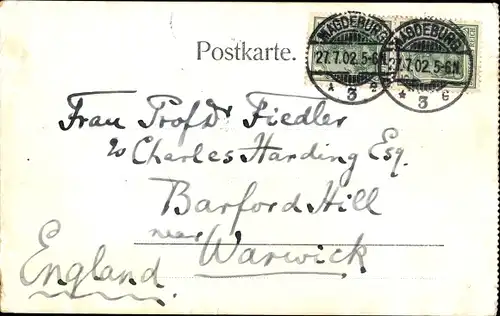 Postkarte.
MAGDEBURG
27.7.02.5-6N
* 3 G
MAGDEBURG
27.7.02.5-6N
* 3 G
Frau Prof Dr Fiedler
c/o Charles Harding Esq.
Barford Hill
near Warwick
England.